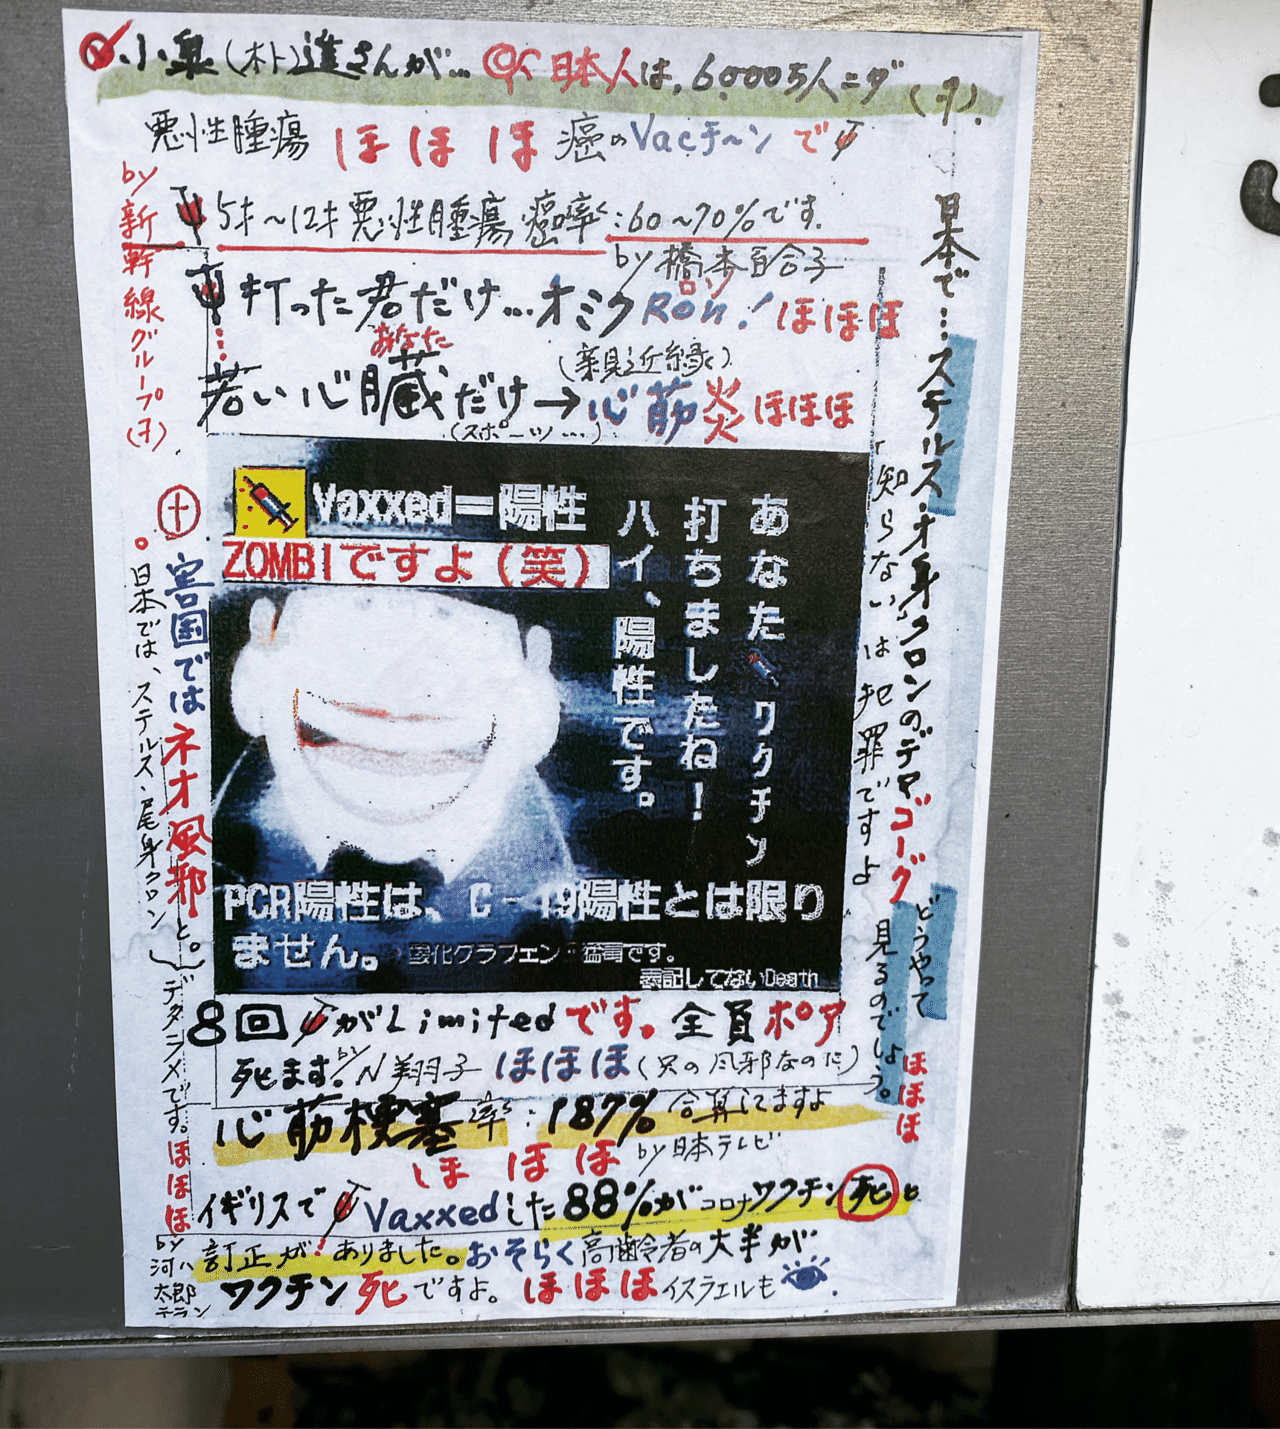 小泉(ホト)進さんが… 日本人は、6000万人ニダ(ヲ).
悪性腫瘍 ほほほ 癌のVacチ〜ンで
5才〜12才悪性腫瘍癌率:60〜70%です.
by 橋本百合子
打った君だけ…オミクRon!ほほほ
ロン
あなた
(親近縁)
若い心臓だけ→心筋炎ほほほ
(スポーツ…)
by新幹線グループ(ヲ).
日本で…ステルスオ身クロンのデマゴーグ
「知らない」は犯罪ですよ
どうやって見るのでしょう。
ほほほ
Vaxxed=陽性
ZOMBIですよ(笑)
あなた、ワクチン
打ちましたね!
ハイ、陽性です。
PCR陽性は、C-19陽性とは限り
ません。
酸化グラフェン 猛毒です。
表記してないDeath
害国ではネオ風邪と。
日本では、ステルス・尾身クロン
デタラメです。ほほほ
by河ハ太郎テラン
8回がLimitedです。全員ポア
死ます。by N翔子 ほほほ(只の風邪なのだ)
心筋梗塞率:187% 合算してますよ
ほほほ by日本テレビ
イギリスでVaxxedした88%がコロナワクチン死と
訂正がありました。おそらく高齢者の大半が
ワクチン死ですよ。ほほほイスラエルも